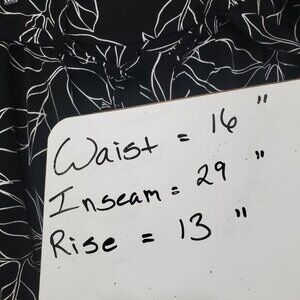 Waist = 16 "
Inseam = 29 "
Rise = 13 "